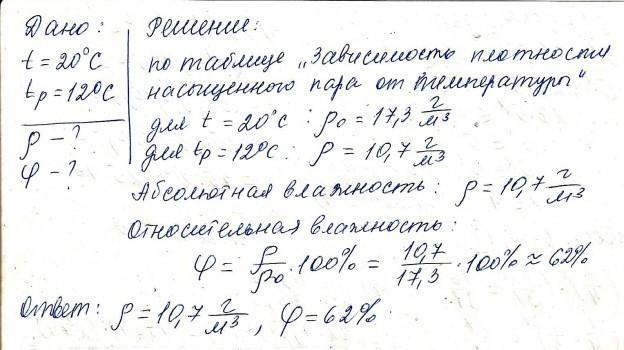 Дано: Решение:
t = 20°C по таблице „Зависимость плотности
tр = 12°C насыщенного пара от температуры"
ρ – ? для t = 20°C : ρ₀ = 17,3 г/м³
φ – ? для tр = 12°C : ρ = 10,7 г/м³
Абсолютная влажность: ρ = 10,7 г/м³
Относительная влажность:
φ = ρ/ρ₀ · 100% = 10,7/17,3 · 100% ≈ 62%
Ответ: ρ = 10,7 г/м³, φ = 62%